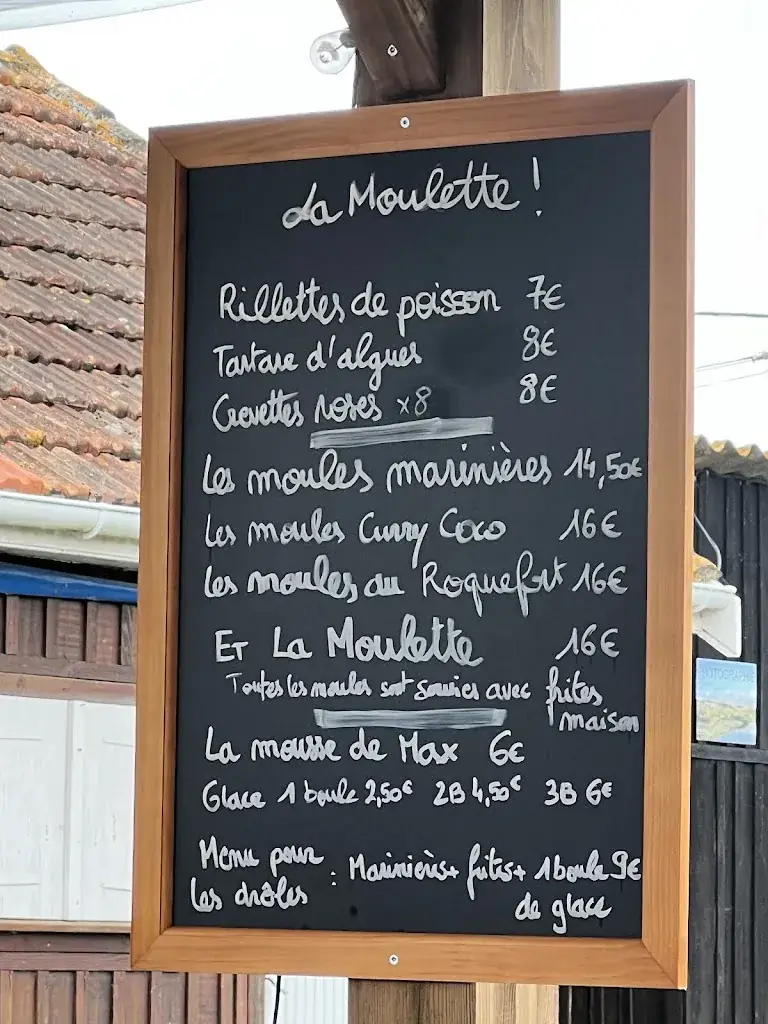 La Moulette !
Rillettes de poisson 7€
Tartare d'algues 8€
Crevettes roses x8 8€
Les moules marinières 14,50€
Les moules Curry Coco 16€
Les moules au Roquefort 16€
Et La Moulette 16€
Toutes les moules sont servies avec frites
maison
La mousse de Max 6€
Glace 1 boule 2,50€ 2B 4,50€ 3B 6€
Menu pour
les drôles : Marinières + frites + 1 boule 9€
de glace